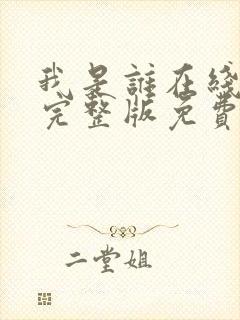 我是誰在綫
完整版免費
二堂姐